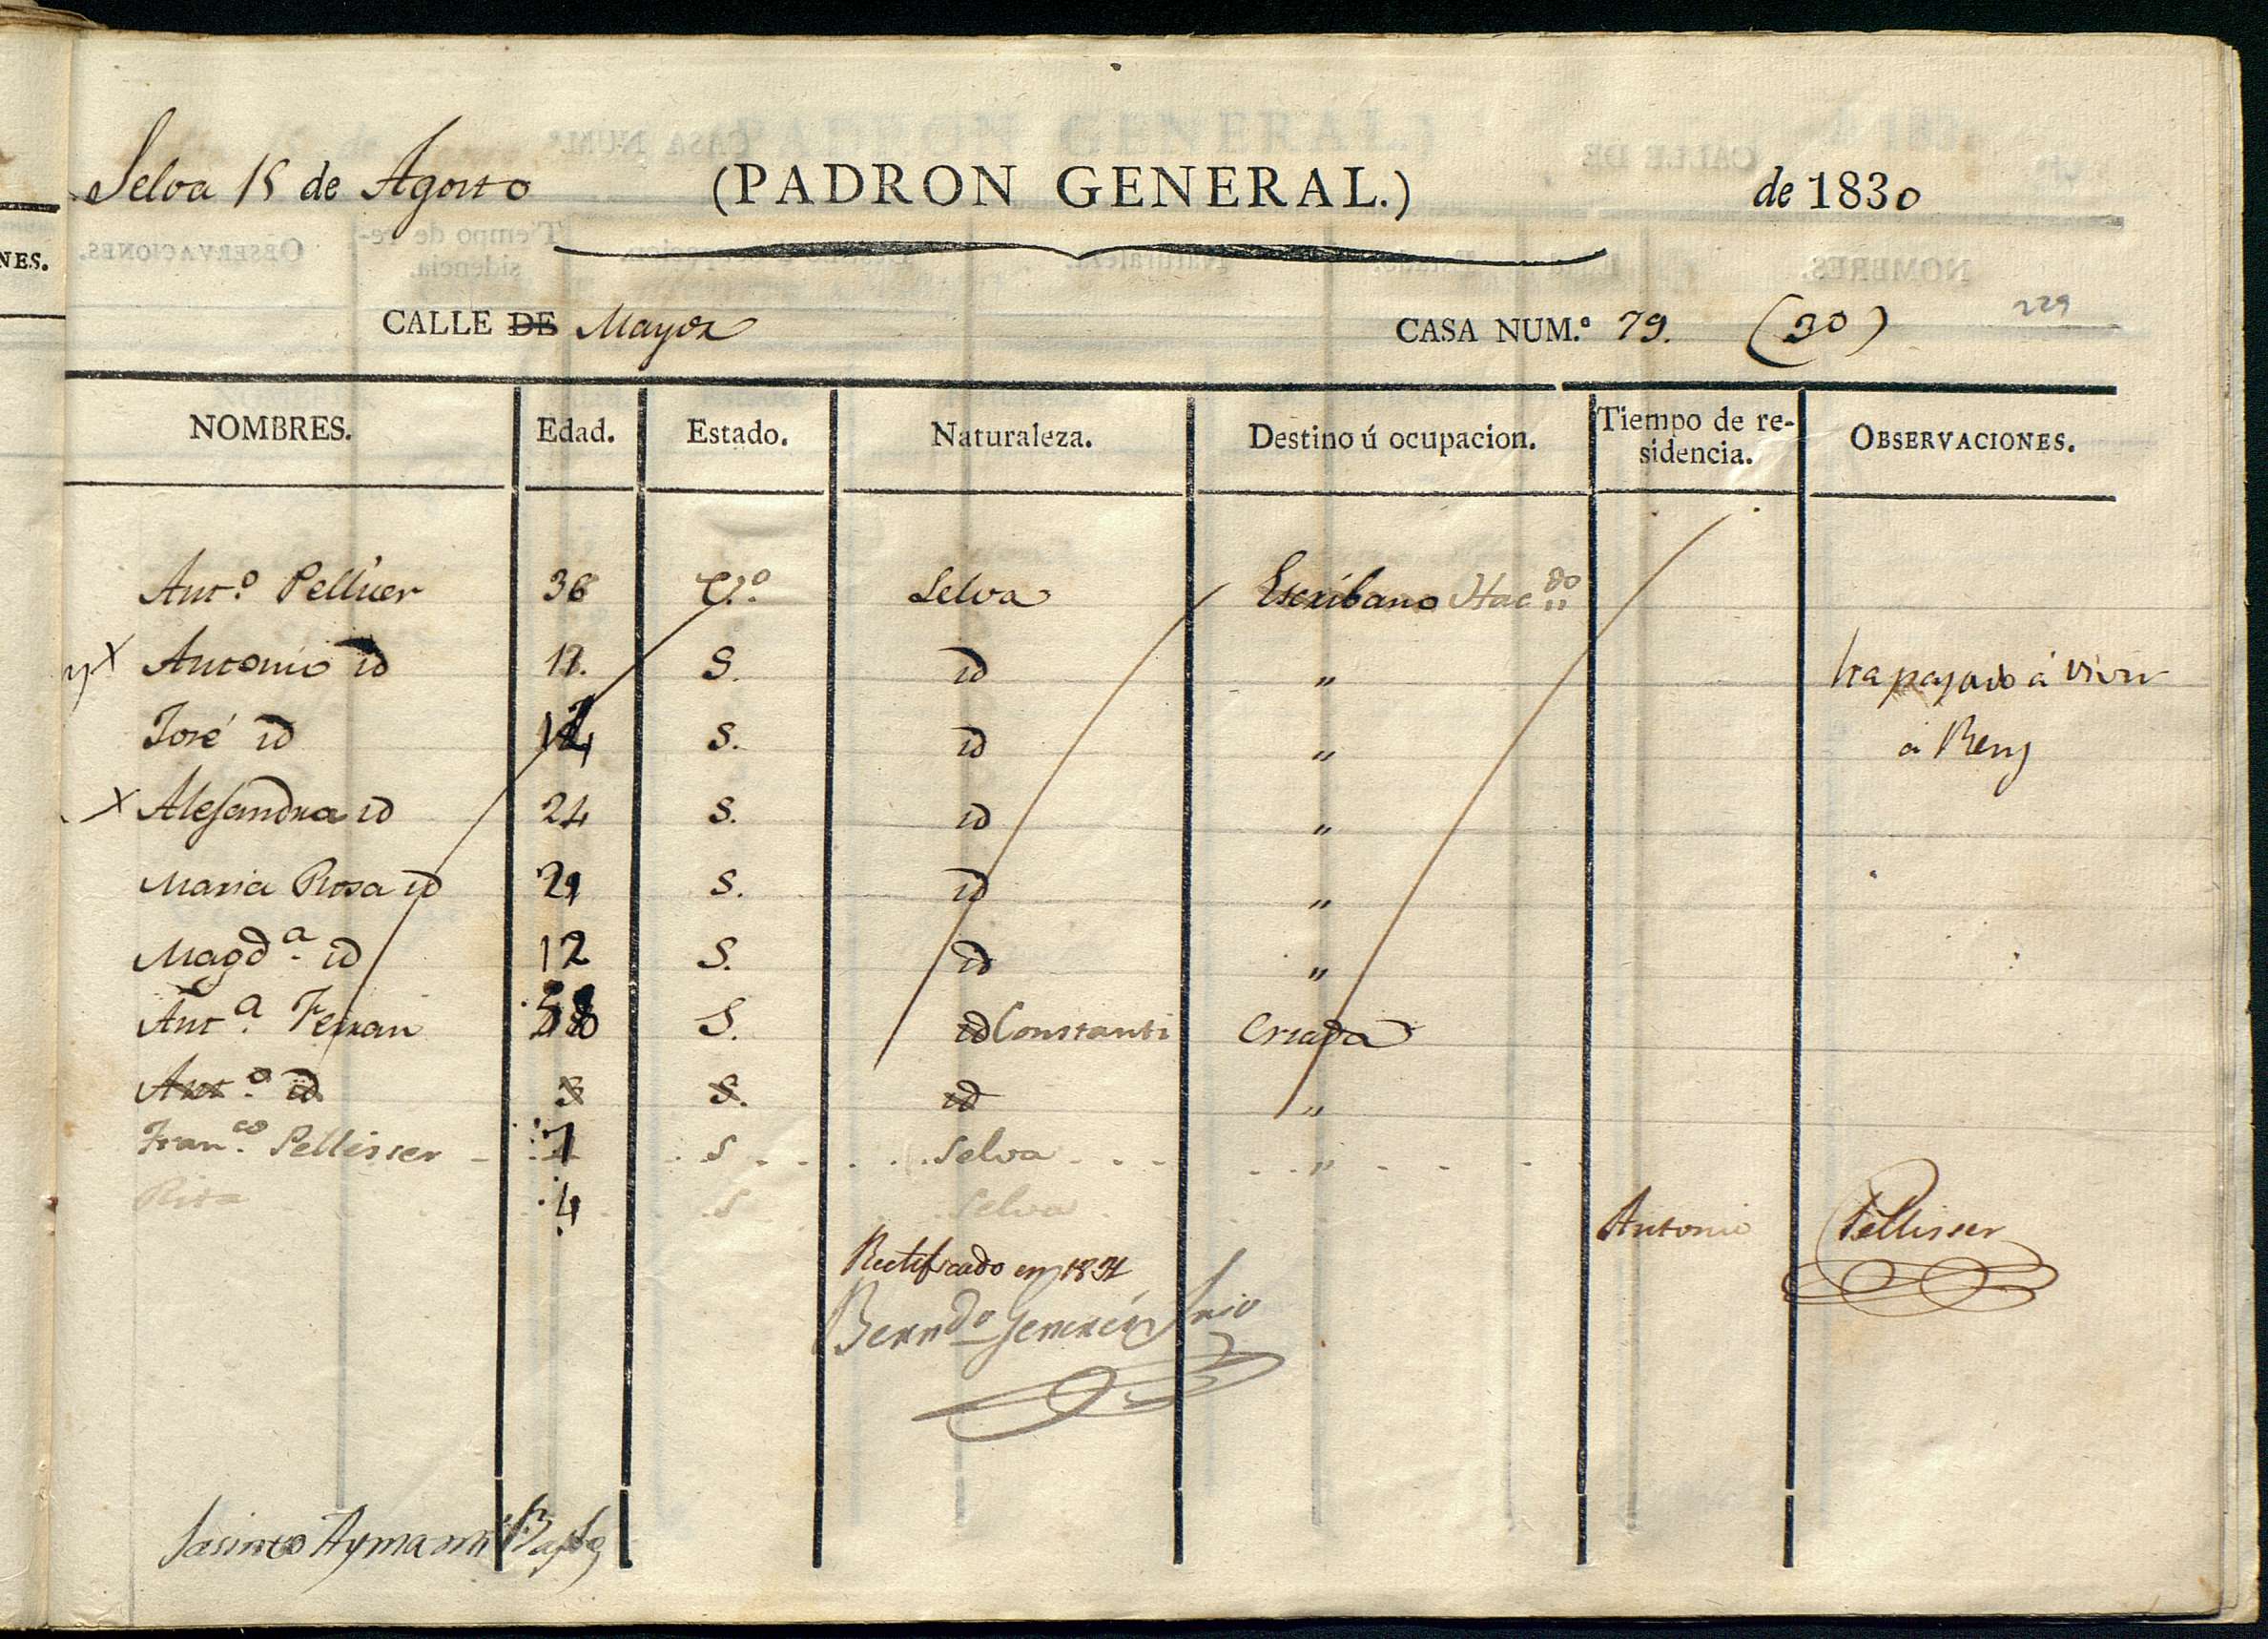 NES.
Selva 15 de Agosto (PADRON GENERAL.) de 1830
CALLE DE Mayor CASA NUM.º 79. (30) 229
NOMBRES. Edad. Estado. Naturaleza. Destino ú ocupacion. Tiempo de re-
sidencia. OBSERVACIONES.
Ant.º Pellicer 36 C.º Selva Escribano Hac.do
x Antonio id S. id „ ha pasado á vivir
José id S. id „ á Reus
x Alejandra id 24 S. id „
Maria Rosa id 21 S. id „
Magd.a id 12 S. id „
Ant.a Ferran S. id Constanti Criada
Ant.º id 3 S. id „
Fran.co Pellisser 7 S Selva „
Rita 4 S Selva
Antonio Pellisser
Rectificado en 1831
Bern.do Srio
Jasinto Aymamí Bayle